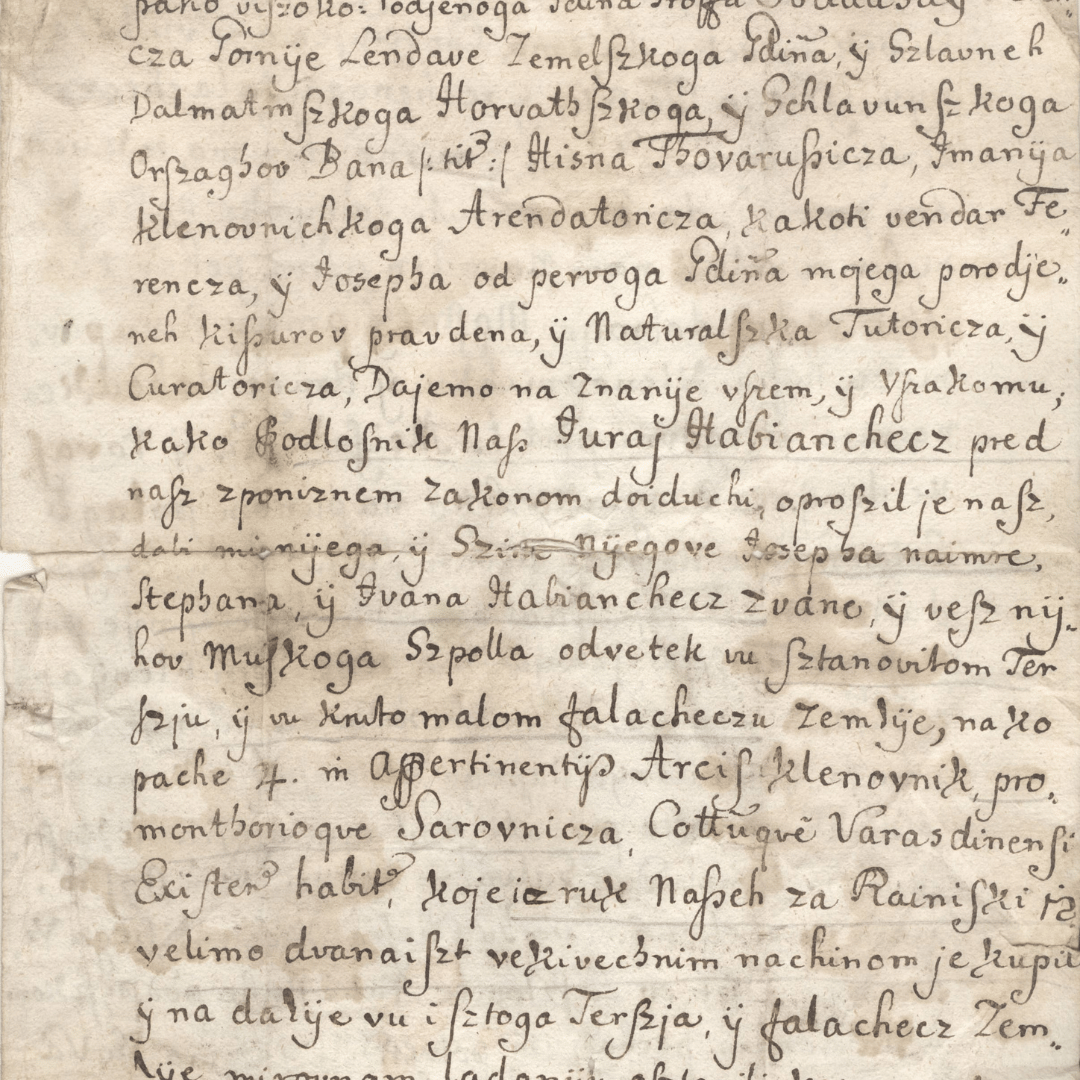 pako viszoko: rodjenoga Gdina Groffa
cza Gornye Lendave Zemelszkoga Gdina, ÿ Szlavneh
Dalmatinszkoga Horvathszkoga, ÿ Schlavunszkoga
Orszaghov Bana /: titt :/ Hisna Thovarussicza, Imanÿa
Klenovnichkoga Arendatoricza, kakoti vendar Fe„
rencza, ÿ Josepha od pervoga Gdina mojega porodje„
neh kissurov pravdena, ÿ Naturalszka Tutoricza, ÿ
Curatoricza, Dajemo na Znanÿe vszem, ÿ Vszakomu,
kako Podlosnik Nass Juraj Habianchecz pred
nasz zponiznem Zakonom doiduchi, oproszil je nasz,
dabi mi nÿega, ÿ Szine Nÿegove Josepha naimre,
Stephana, ÿ Ivana Habianchecz zvane, ÿ vesz nÿ„
hov Muskoga Szpolla odvetek vu sztanovitom Ter
szju, ÿ vu kruto malom falacheczu Zemlÿe, na ko
pache 4. in Appertinentÿs Arcis Klenovnik, pro„
monthorioqve Sarovnicza, Cottuqve Varasdinensi
Existen habit, koje iz ruk Nasseh za Rainiski
velimo dvanaiszt vekivechnim nachinom je kupil
ÿ na dalÿe vu isztoga Terszja, ÿ falachecz Zem„
lÿe